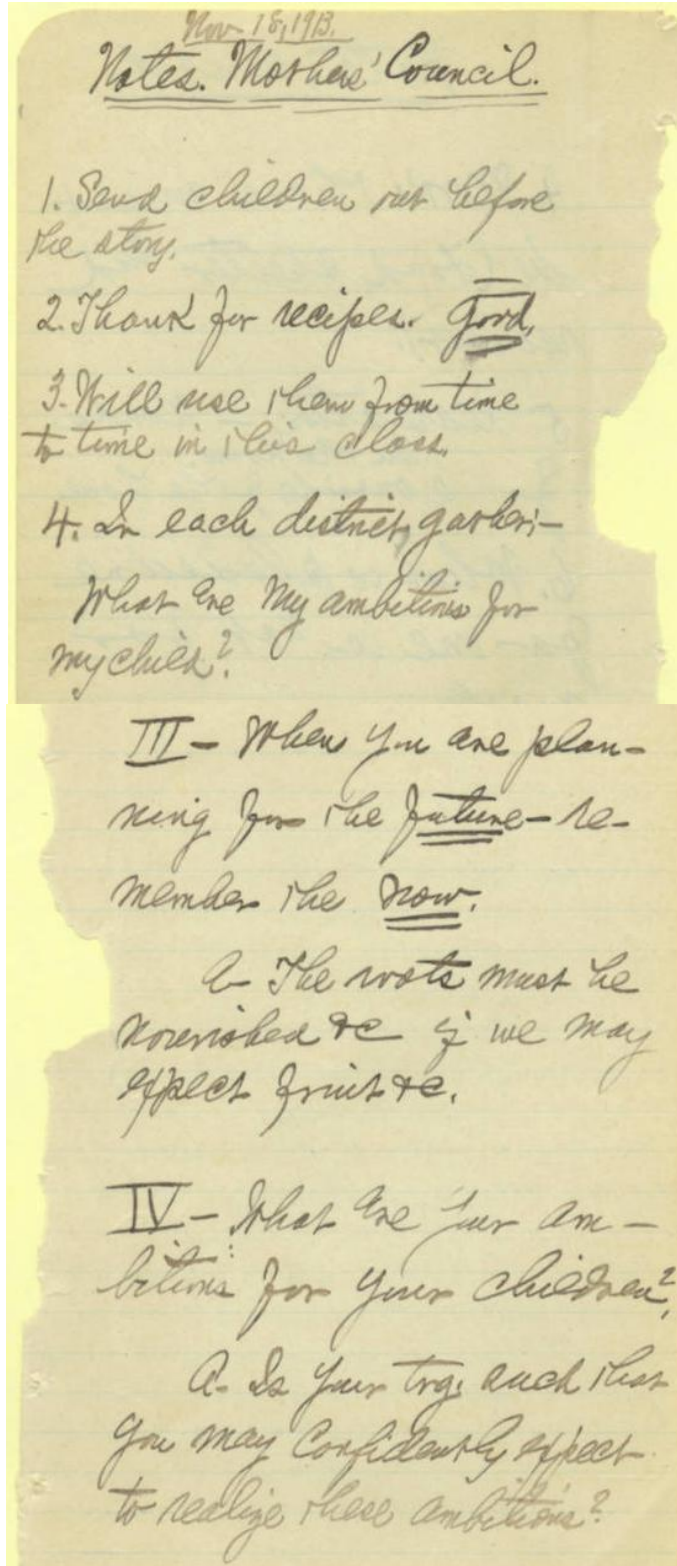 Nov 18, 1913.
Notes. Mothers' Council.
1. Send children out before
the story.
2. Thank for recipes. Good.
3. Will use them from time
to time in this class.
4. In each district, gather:-
What are my ambitions for
my child?
III - When you are plan-
ning for the future - re-
member the now.
a- The roots must be
nourished &c if we may
expect fruit &c.
IV - What are your am-
bitions for your children?
a- Is your trg. such that
you may confidently expect
to realize these ambitions?